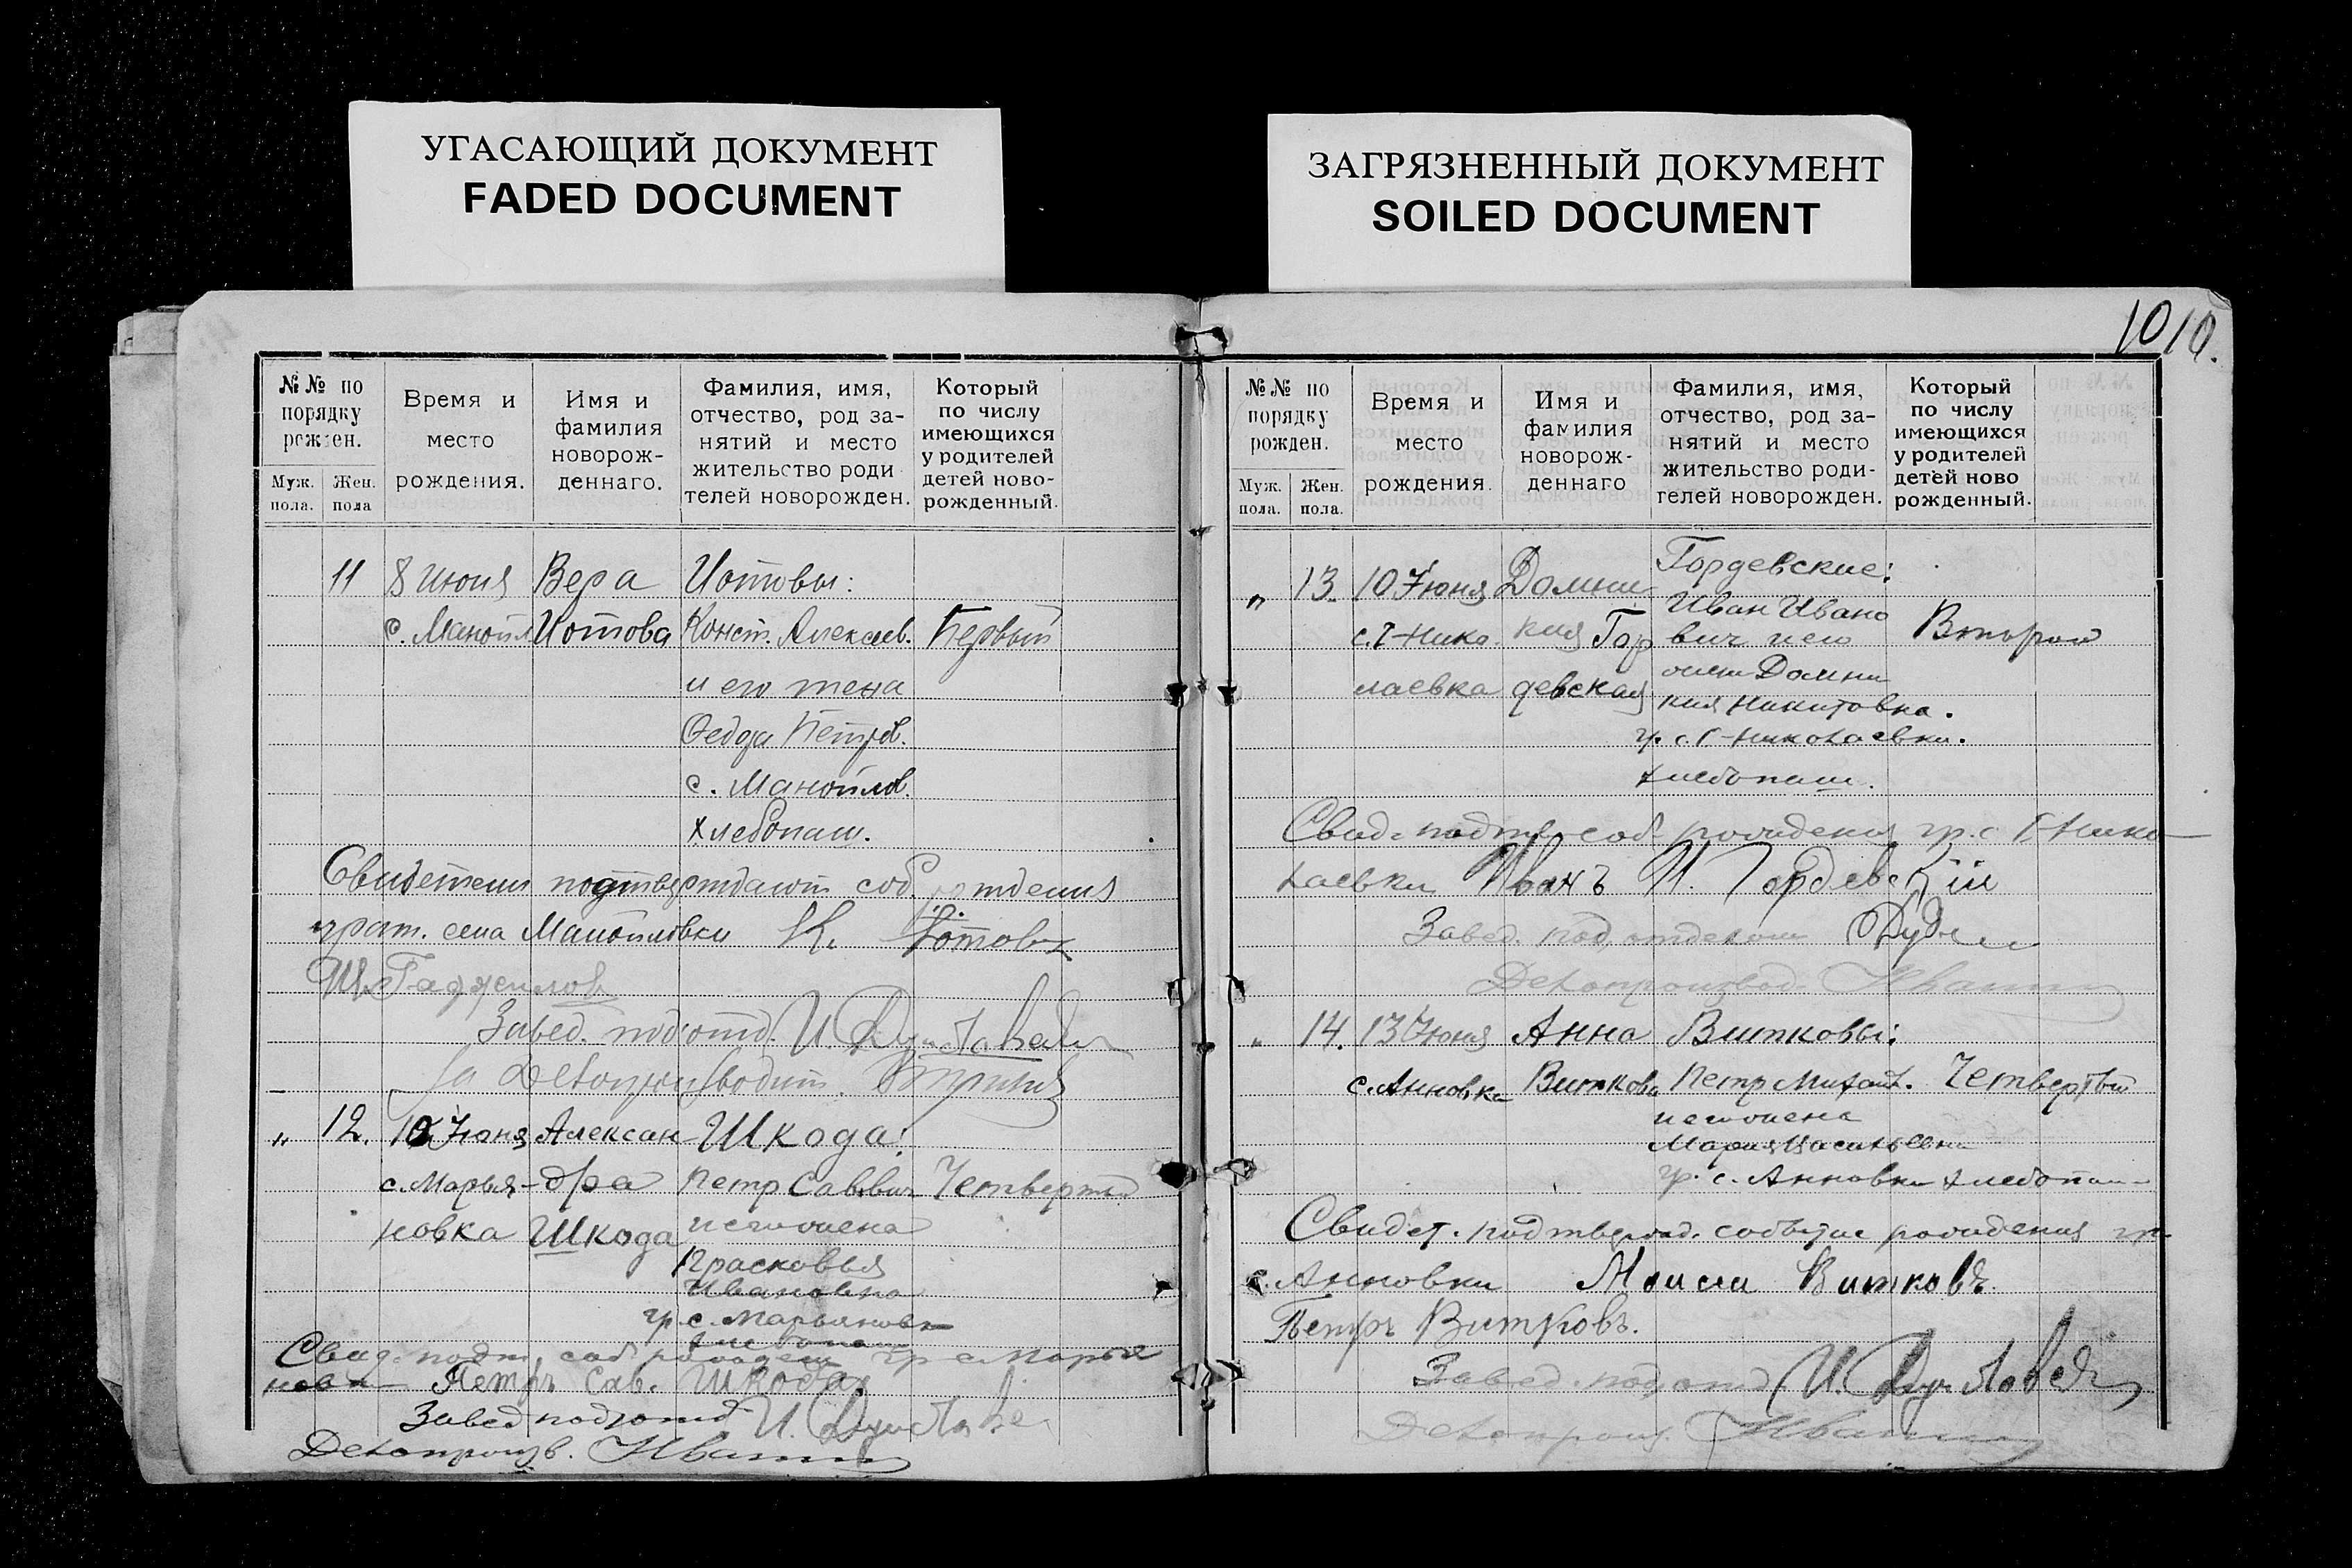 УГАСАЮЩИЙ ДОКУМЕНТ
FADED DOCUMENT
ЗАГРЯЗНЕННЫЙ ДОКУМЕНТ
SOILED DOCUMENT
1010.
№№ по порядку рожден.
Муж. пола.
Жен. пола
Время и место рождения.
Имя и фамилия новорож-деннаго.
Фамилия, имя, отчество, род за-нятий и место жительство роди телей новорожден.
Который по числу имеющихся у родителей детей ново-рожденный.
11 8 Июня Вера Иотовы:
с. Маноил Иотова Конст. Алексеев. Первый
и его жена
Федора Петров.
с. Манойлов.
хлебопаш.
Свидетели подтверждают соб. рождения
граж. села Манойловки К. Иотовъ
Завед. подотд. И
За Делопроизводит.
" 12. 10 Июня Алексан- Шкода:
с. Марья- дра Петр Саввич Четвертый
новка Шкода и его жена
Прасковья
Ивановна
гр. с. Марьяновк
хлебопаш
Свид. подт. соб. рожден гр с Марья
новк Петръ Сав. Шкода
Завед подотд И.
Делопроизв. Иванин
№№ по порядку рожден.
Муж. пола.
Жен. пола.
Время и место рождения.
Имя и фамилия новорож-деннаго
Фамилия, имя, отчество, род за-нятий и место жительство роди-телей новорожден.
Который по числу имеющихся у родителей детей ново рожденный.
" 13. 10 Июня Домни- Гордевские:
Иван Ивано
с. Г-Нико- кия Гор вич и его Второй
жена Домни
лаевка девская кия Никитовна.
гр. с. Г-Николаевки.
хлебопаш.
Свид. подтв. соб. рождения гр. с Г-Нико-
лаевки Иванъ И. Гордевскій
Завед. под отделом
Делопроизвод. Иванин
" 14. 13 Июня Анна Витковы:
с. Анновка Виткова Петр Михайл. Четвертый
и его жена
Мария Васильевна
гр. с. Анновки хлебопаш
Свидет. подтвержд. событие рождения гр.
с. Анновки Моисей Витковъ.
Петръ Витковъ.
Завед. под отд И.
Делопроиз. Иванин